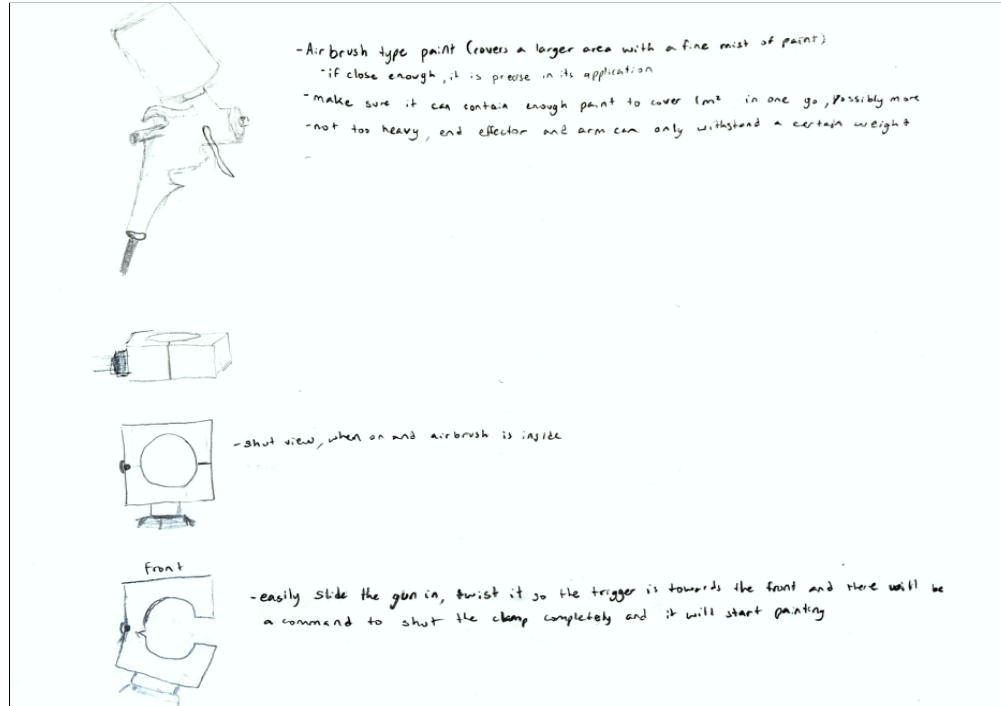 -Airbrush type paint (covers a larger area with a fine mist of paint)
-if close enough, it is precise in its application
-make sure it can contain enough paint to cover 1m² in one go, possibly more
-not too heavy, end effector and arm can only withstand a certain weight
-
-shut view, when on and airbrush is inside
Front
-easily slide the gun in, twist it so the trigger is towards the front and there will be
a command to shut the clamp completely and it will start painting